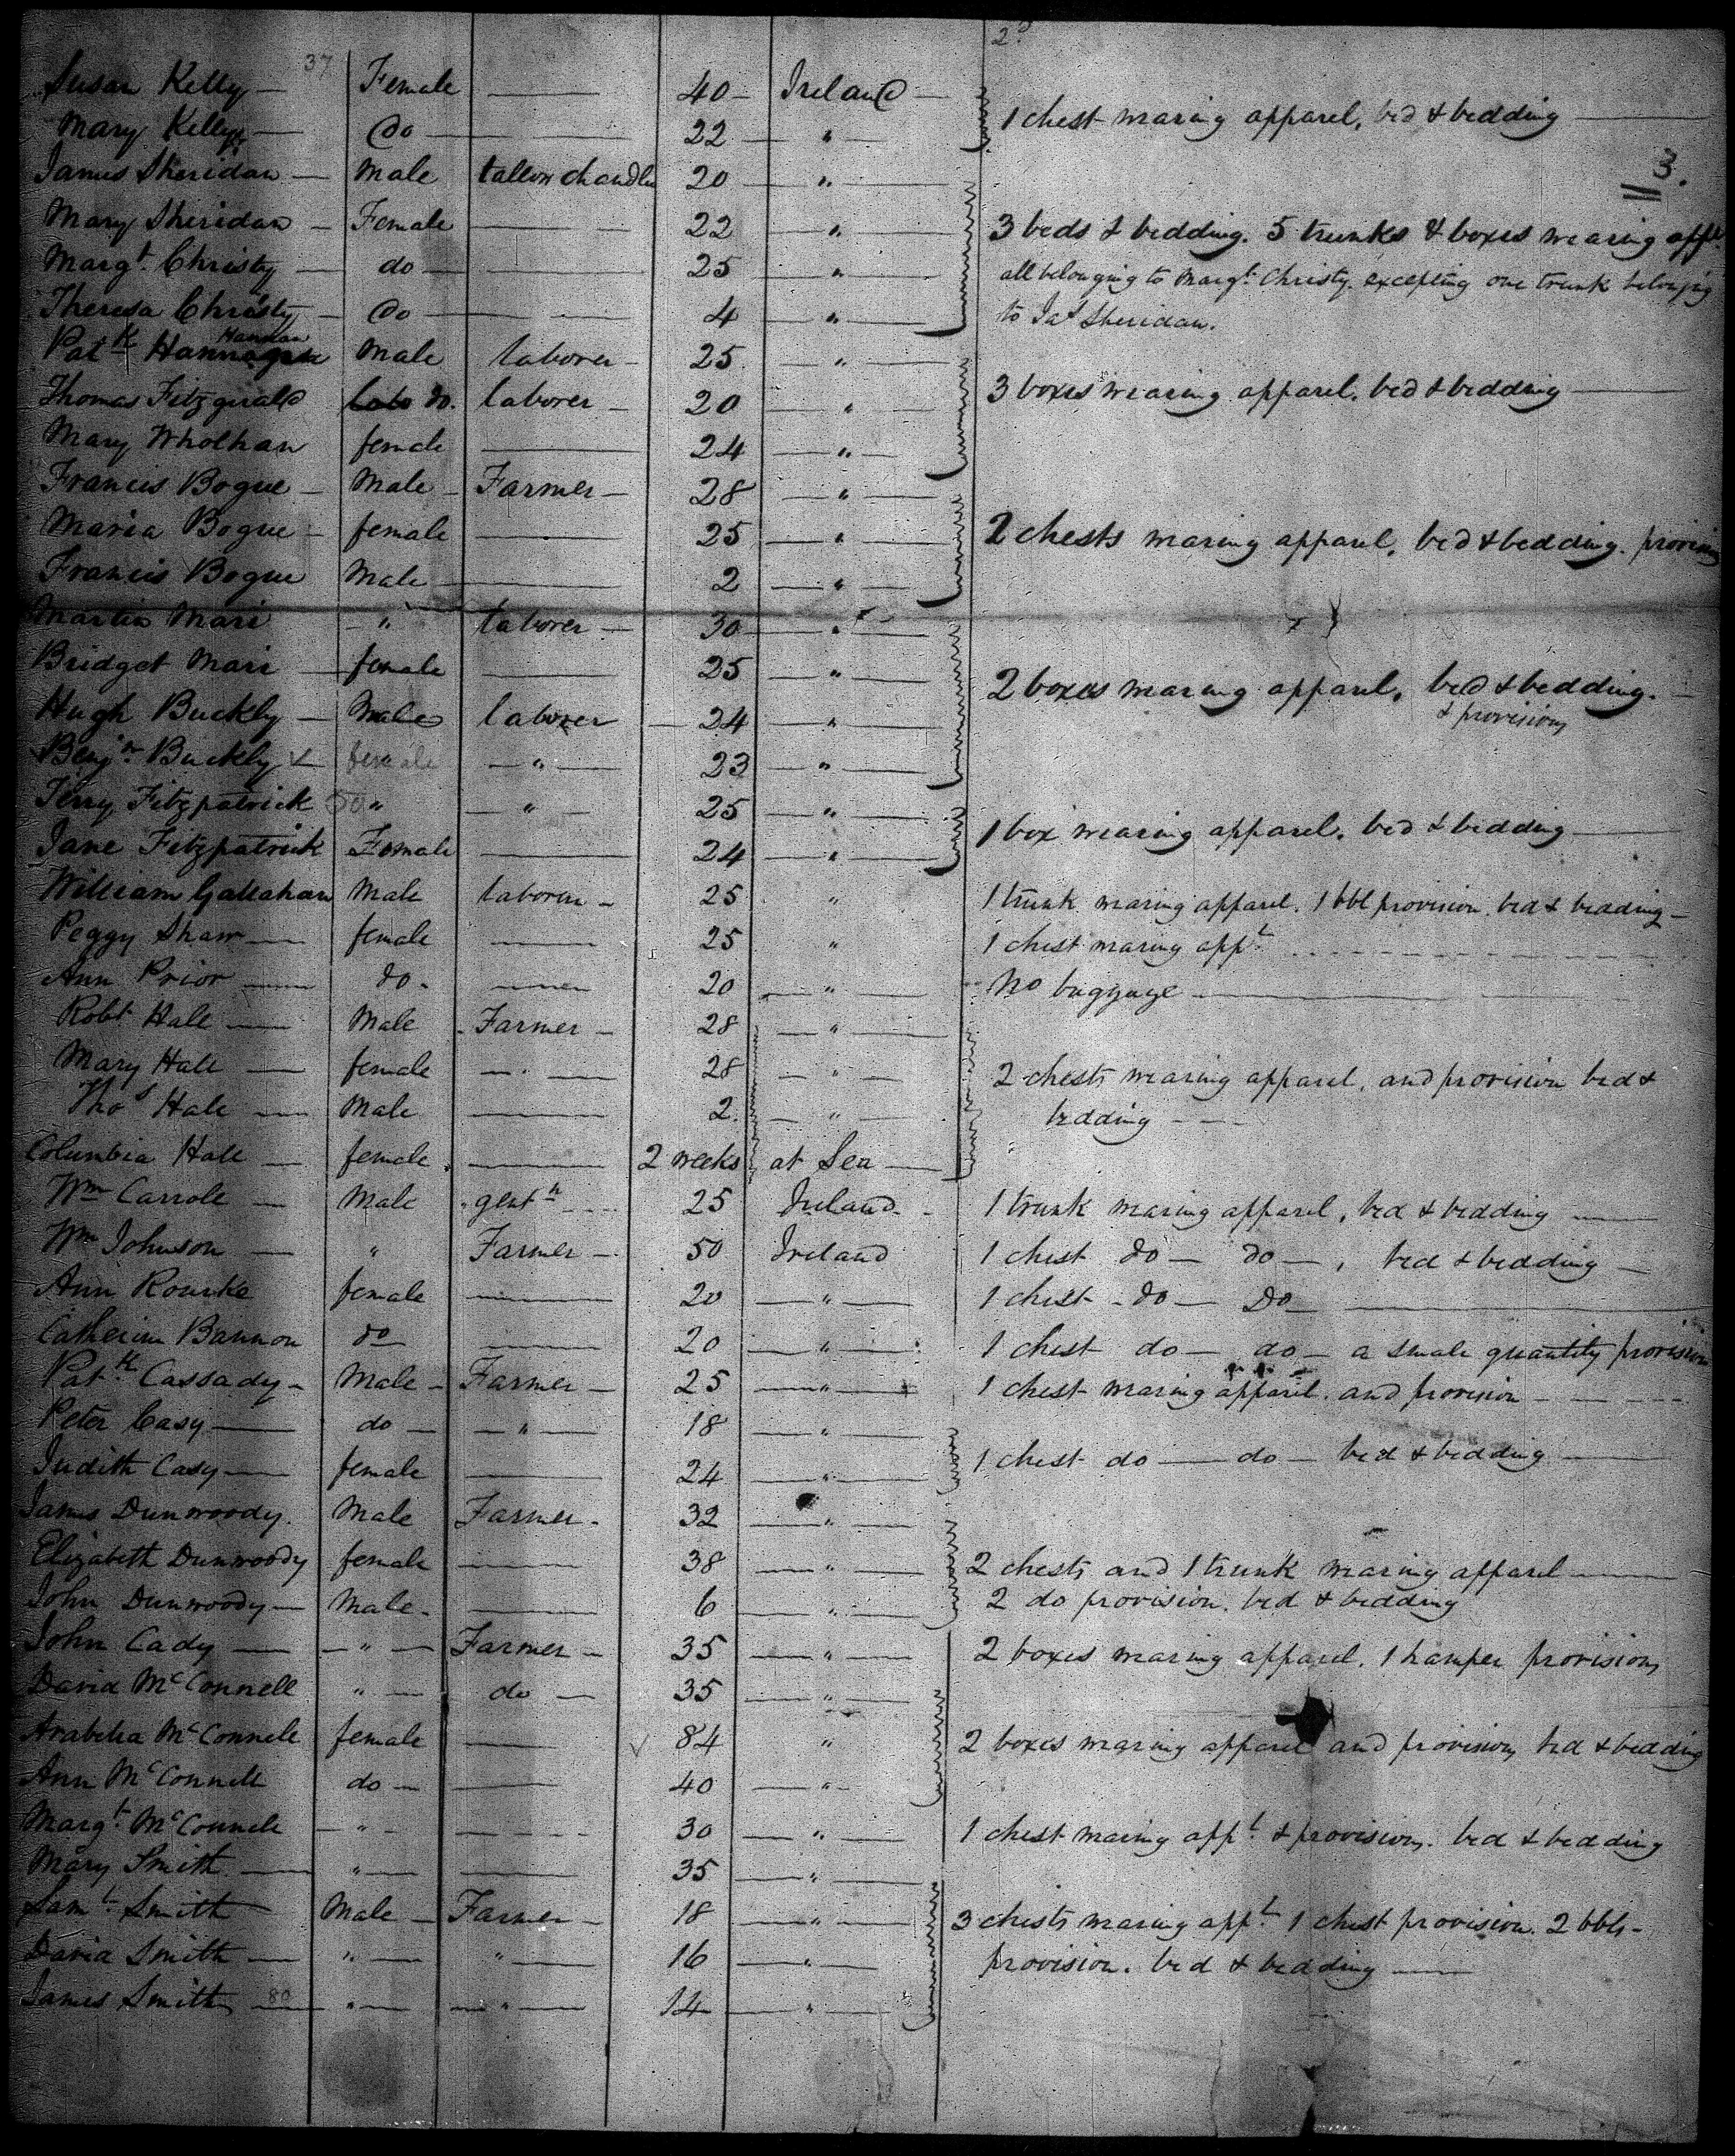 37 2d
Susan Kelly — Female — 40 — Ireland —
1 chest wearing apparel, bed & bedding —
Mary Kelly — Do — 22 — " —
3.
James Sheridan — Male tallow chandler 20 — " —
Mary Sheridan — Female — 22 — " —
3 beds & bedding. 5 trunks & boxes wearing appl
Margt. Christy — do — 25 — " —
all belonging to Margt. Christy. excepting one trunk belonging
Theresa Christy — Do — 4 — " —
to Jas Sheridan.
Hannan
Patk Male laborer — 25. — " —
Thomas Fitzgerald do. laborer — 20 — " —
3 boxes wearing apparel, bed & bedding —
Mary Wholhan female — 24 — " —
Francis Bogue — Male — Farmer — 28 — " —
Maria Bogue — female — 25 — " —
2 chests wearing apparel, bed & bedding. provision
Francis Bogue Male — 2 — " —
Martin Mari — " laborer — 30 — " —
Bridget Mari — female — 25 — " —
2 boxes wearing apparel, bed & bedding. —
Hugh Buckly — Male laborer — 24 — " —
& provisions
Benjn Buckly female — " — 23 — " —
Terry Fitzpatrick 50 " " 25 — " —
1 box wearing apparel, bed & bedding —
Jane Fitzpatrick Female — 24 — " —
William Gallahan Male laborer — 25 "
1 trunk wearing apparel. 1 bbl provision. bed & bedding —
Peggy Shaw — female — 25 "
1 chest wearing appl.
Ann Prior — do. — 20 — " —
No baggage —
Robt Hall — Male — Farmer — 28 — " —
Mary Hall — female — " — 28 — " —
2 chests wearing apparel, and provision bed &
Thos Hall — Male — 2. — " —
bedding —
Columbia Hall — female. — 2 weeks at Sea —
Wm Carroll — Male gentn 25 Ireland. —
1 trunk wearing apparel, bed & bedding —
Wm Johnson — " Farmer — 50 Ireland
1 chest do — do —, bed & bedding —
Ann Rourke female — 20 — " —
1 chest — do — Do —
Catherine Bannon do — 20 — " —
1 chest do — do — a small quantity provision
Patk Cassady — Male — Farmer — 25 — " —
1 chest wearing apparel. and provision —
Peter Casy — do — " — 18 — " —
Judith Casy — female — 24 — " —
1 chest do — do — bed & bedding —
James Dunwoody. Male Farmer — 32 — " —
Elizabeth Dunwoody female — 38 — " —
2 chests and 1 trunk wearing apparel —
John Dunwoody — Male — 6 — " —
2 do provision. bed & bedding
John Cady — " — Farmer — 35 — " —
2 boxes wearing apparel. 1 hamper provisions
David McConnell " — do — 35 — " —
Arabella McConnell female — 84 "
2 boxes wearing apparel and provisions bed & bedding
Ann McConnell do — 40 — " —
Margt. McConnell — " — 30 — " —
1 chest wearing appl. & provisions. bed & bedding
Mary Smith — " — 35 — " —
Saml. Smith Male — Farmer — 18 — " —
3 chests wearing appl. 1 chest provision. 2 bbls —
David Smith — " — " — 16 — " —
provision. bed & bedding —
James Smith 80 — " — " — 14 — " —